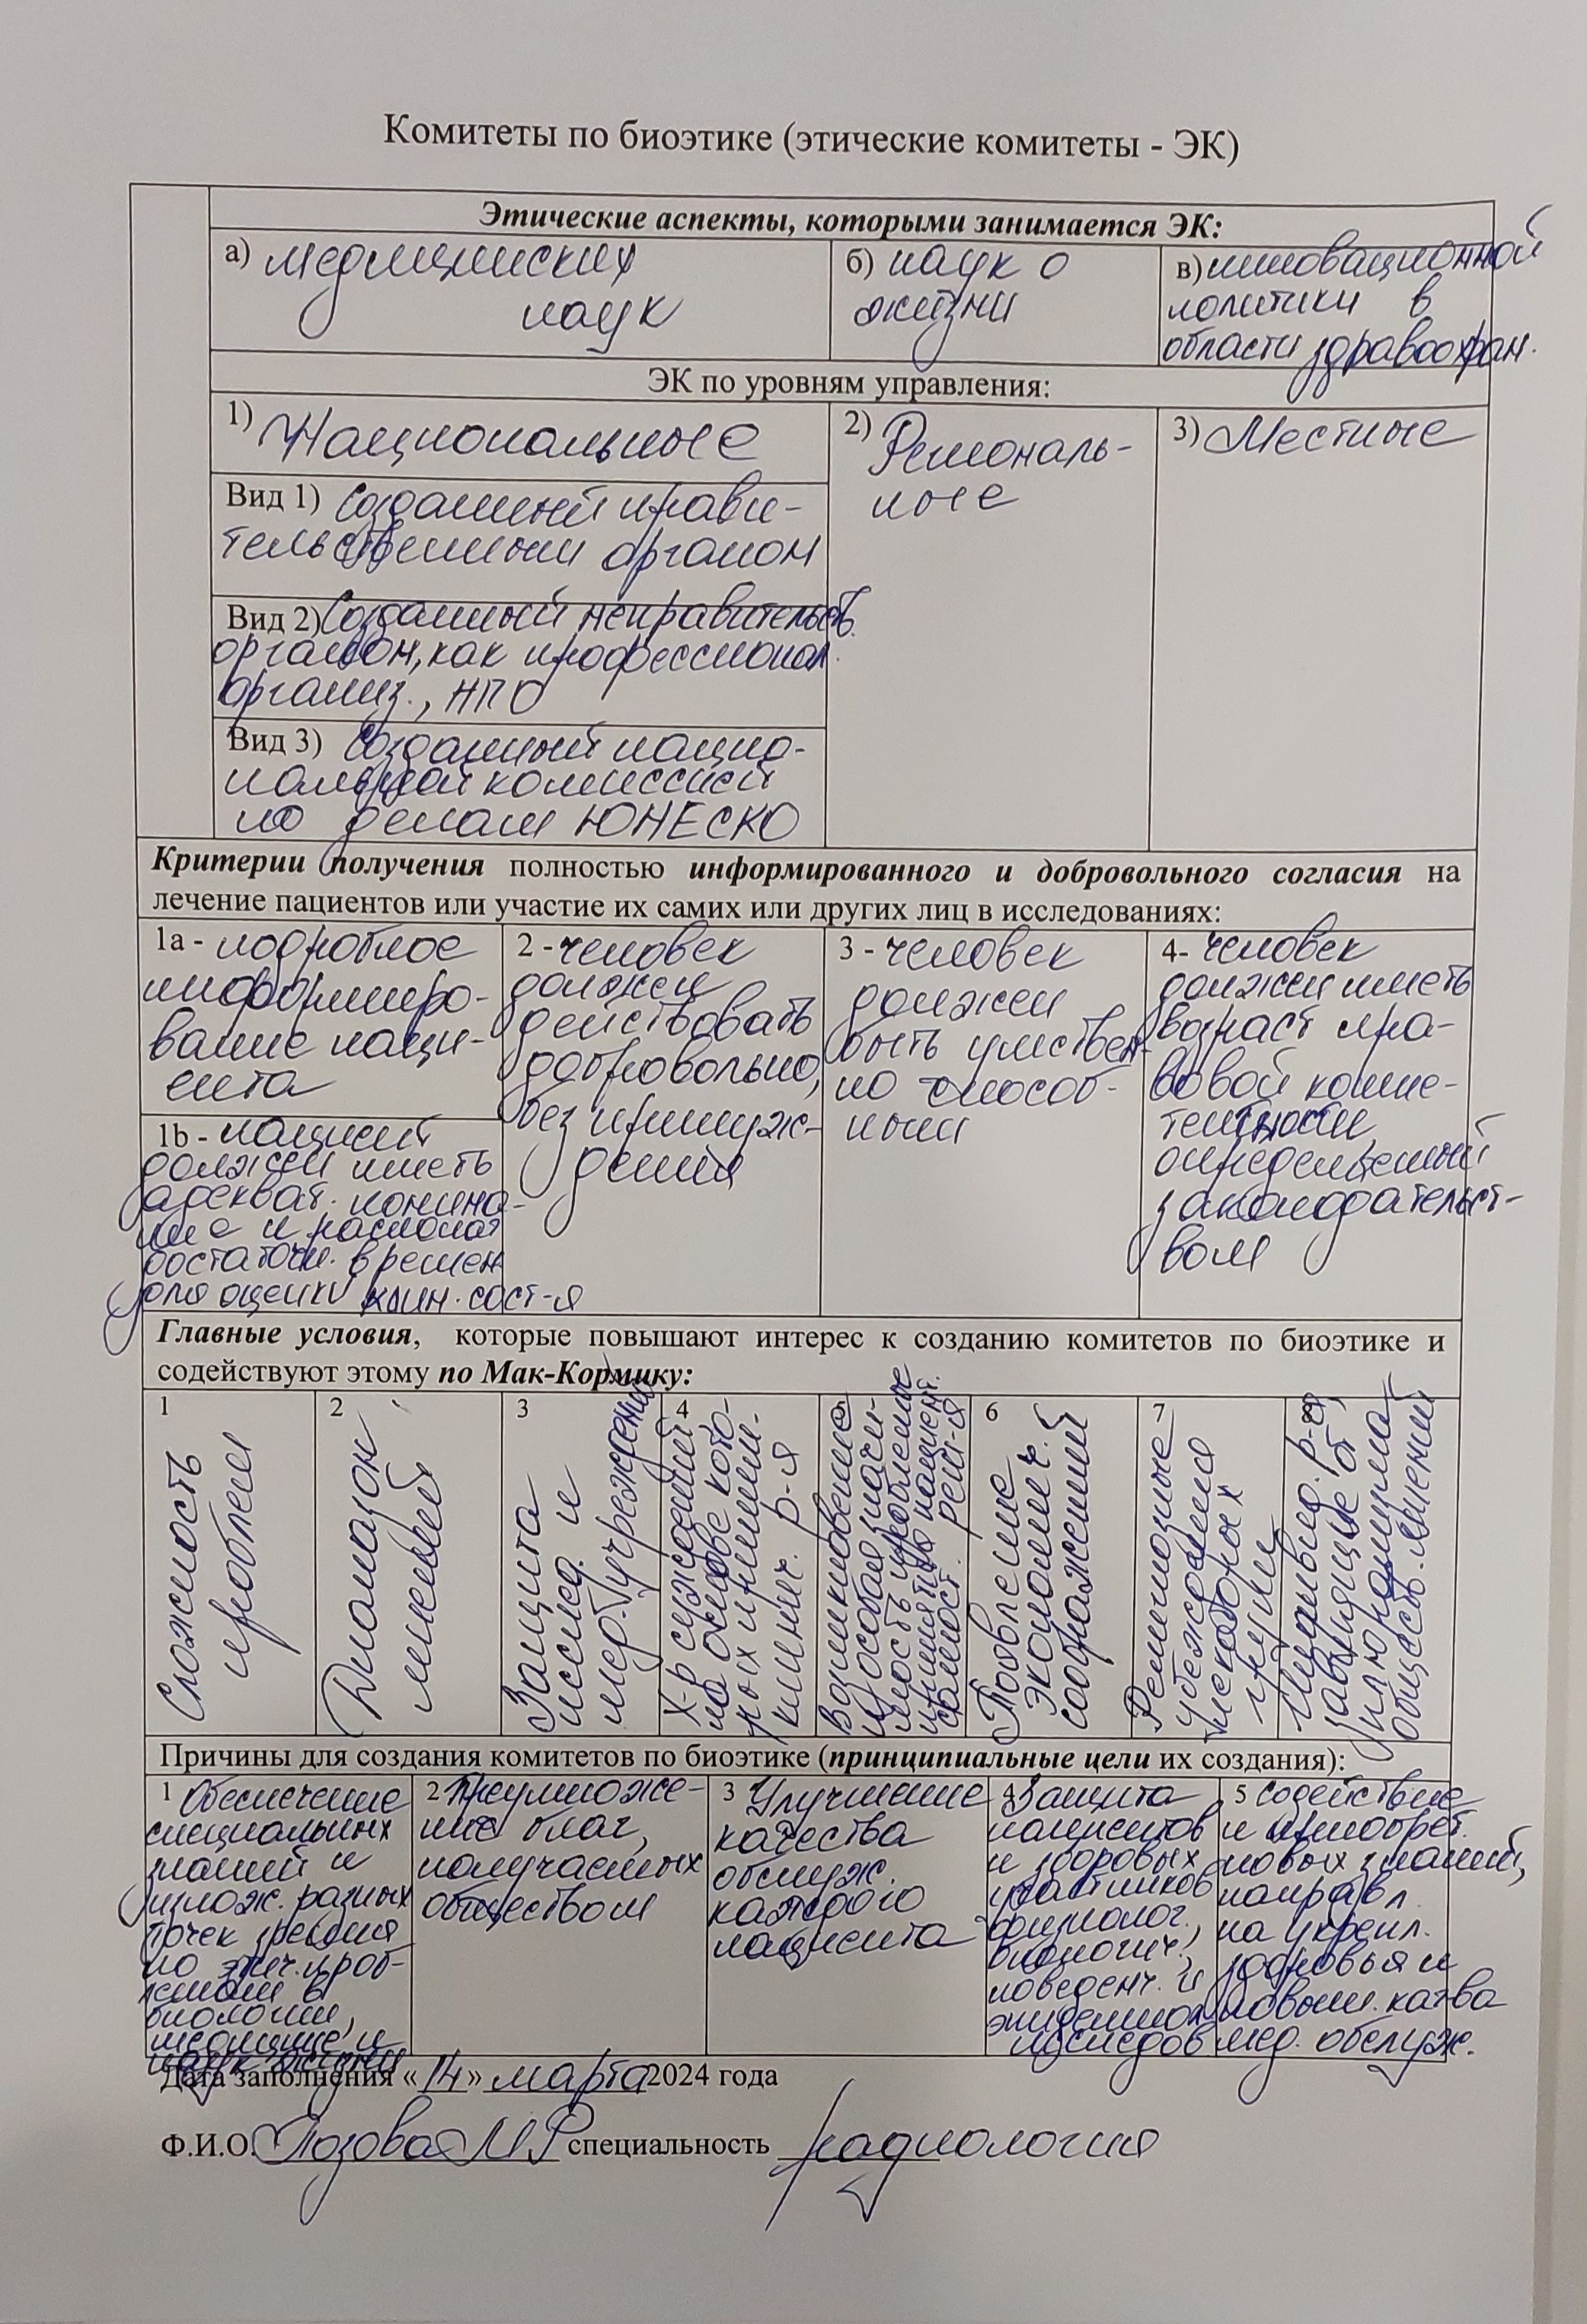 Комитеты по биоэтике (этические комитеты - ЭК)
Этические аспекты, которыми занимается ЭК:
а) медицинских
наук
б) наук о
жизни
в) инновационной
политики в
области здравоохран.
ЭК по уровням управления:
1) Национальные
2) Региональ-
ные
3) Местные
Вид 1) созданный прави-
тельственным органом
Вид 2) Созданный неправительств.
органом, как профессионал.
организ., НПО
Вид 3) Созданный нацио-
нальной комиссией
по делам ЮНЕСКО
Критерии получения полностью информированного и добровольного согласия на
лечение пациентов или участие их самих или других лиц в исследованиях:
1а - подробное
информиро-
вание паци-
ента
1b - пациент
должен иметь
адекват. понима-
ние и располаг
достаточн. времен
для оценки клин. сост-я
2 - человек
должен
действовать
добровольно,
без принуж-
дения
3 - человек
должен
быть умствен-
но способ-
ным
4- человек
должен иметь
возраст пра-
вовой компе-
тентности,
определенный
законодательст-
вом
Главные условия, которые повышают интерес к созданию комитетов по биоэтике и
содействуют этому по Мак-Кормику:
1
Сложность
проблем
2
Диапазон
мнений
3
Защита
исслед. и
мед. учреждения
4
Х-р суждений,
на основе кото-
рых приним.
клинич. р-я
5
Возникновение
особая
6
Появление
экономич.
соображений
7
Религиозные
убеждения
некоторых
групп
8
Индивид. р-я,
общесть. мнений
Причины для создания комитетов по биоэтике (принципиальные цели их создания):
1 Обеспечение
специальных
знаний и
излож. разных
точек зрения
по этич. проб-
лемам в
биологии,
медицине и
наук жизни
2 Преумноже-
ние благ,
получаемых
обществом
3 Улучшение
качества
обслуж.
каждого
пациента
4 Защита
пациентов
и здоровых
участников
физиолог.,
биологич.,
поведенч. и
эпидемиол
исследов
5 Содействие
и приобрет.
новых знаний,
направл.
на укрепл.
здоровья и
повыш. кач-ва
мед. обслуж.
Дата заполнения «14» марта 2024 года
Ф.И.О. Лозовая М Р специальность радиология